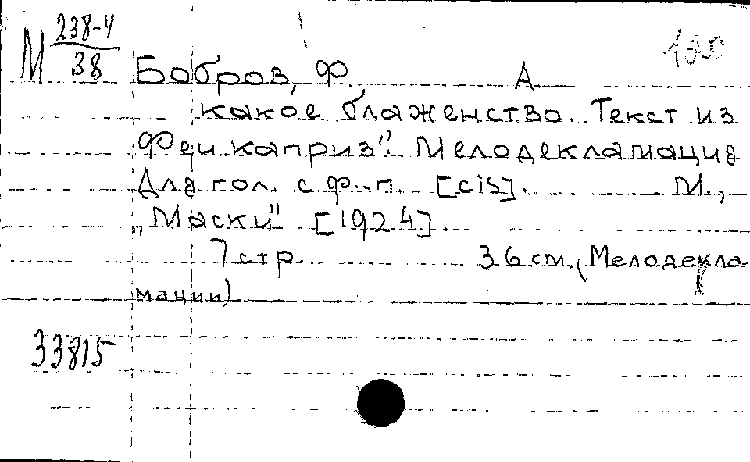 М 238-4
38
Бобров, Ф. А
какое блаженство. Текст из
Феи каприз". Мелодекламация
Для гол. с ф.-п. [cis]. М.,
„Маски" [1924].
7 стр 36 см. (Мелодекла-
мации)
33815